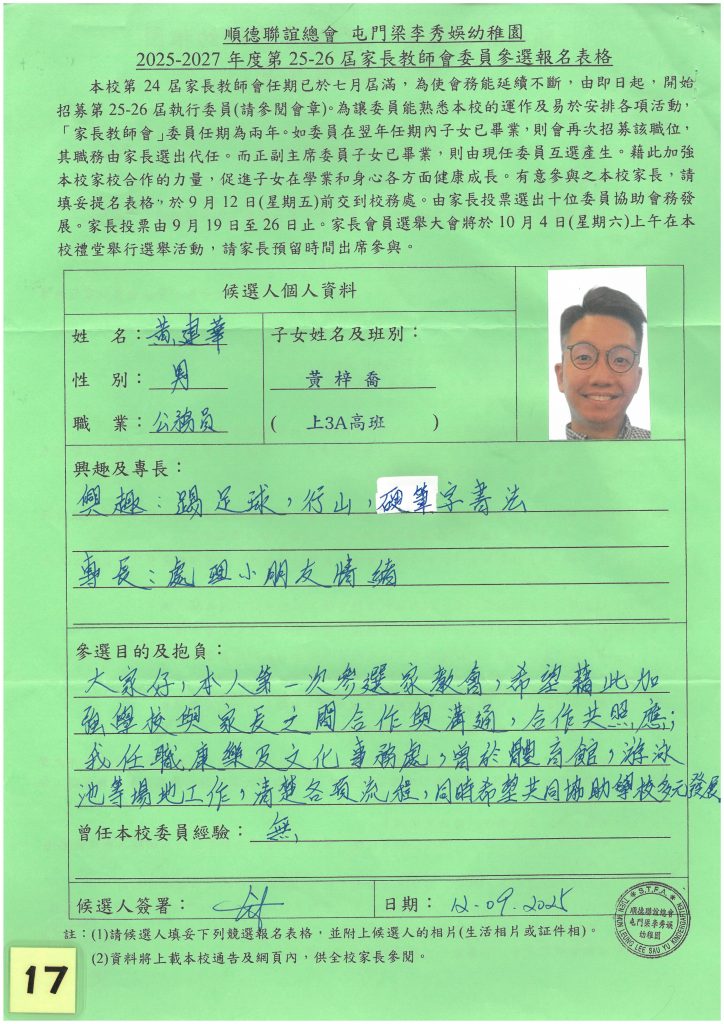 順德聯誼總會 屯門梁李秀娛幼稚園
2025-2027 年度第 25-26 屆家長教師會委員參選報名表格
本校第 24 屆家長教師會任期已於七月屆滿，為使會務能延續不斷，由即日起，開始
招募第 25-26 屆執行委員(請參閱會章)。為讓委員能熟悉本校的運作及易於安排各項活動，
「家長教師會」委員任期為兩年。如委員在翌年任期內子女已畢業，則會再次招募該職位，
其職務由家長選出代任。而正副主席委員子女已畢業，則由現任委員互選產生。藉此加強
本校家校合作的力量，促進子女在學業和身心各方面健康成長。有意參與之本校家長，請
填妥提名表格，於 9 月 12 日(星期五)前交到校務處。由家長投票選出十位委員協助會務發
展。家長投票由 9 月 19 日至 26 日止。家長會員選舉大會將於 10 月 4 日(星期六)上午在本
校禮堂舉行選舉活動，請家長預留時間出席參與。
候選人個人資料
姓 名：黃建華
子女姓名及班別：
性 別：男
黃梓喬
職 業：公務員
( 上3A高班 )
興趣及專長：
興趣：踢足球，行山，硬筆字書法
專長：處理小朋友情緒
參選目的及抱負：
大家好，本人第一次參選家教會，希望藉此加
強學校與家長之間合作與溝通，合作共照應；
我任職康樂及文化事務處，曾於體育館，游泳
池等場地工作，清楚各項流程，同時希望共同協助學校多元發展
曾任本校委員經驗：無
候選人簽署：
日期：12-09-2025
註：(1)請候選人填妥下列競選報名表格，並附上候選人的相片(生活相片或証件相)。
(2)資料將上載本校通告及網頁內，供全校家長參閱。
S.T.F.A.
順德聯誼總會
屯門梁李秀娛
幼稚園
TUEN MUN LEUNG LEE SAU YU KINDERGARTEN
17